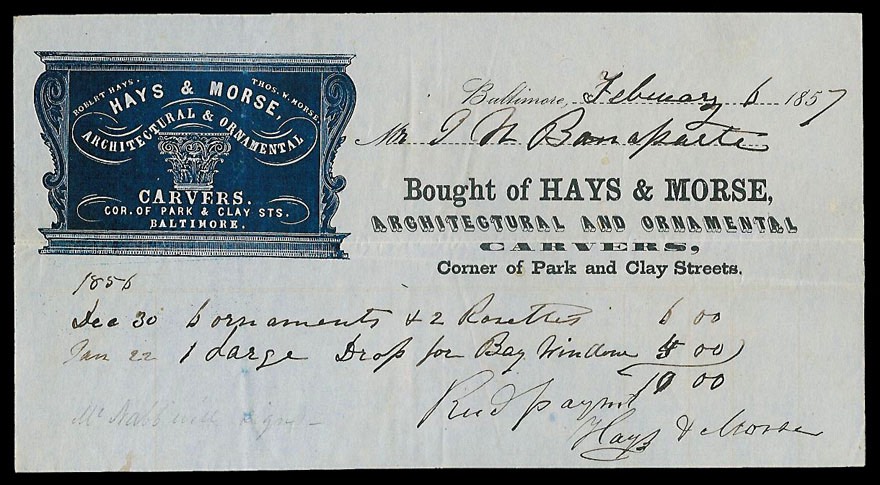 ROBERT HAYS.
THOS. W. MORSE.
HAYS & MORSE,
ARCHITECTURAL & ORNAMENTAL
CARVERS.
COR. OF PARK & CLAY STS.
BALTIMORE.
Baltimore, February 6 1857
Mr J N Bonaparte
Bought of HAYS & MORSE,
ARCHITECTURAL AND ORNAMENTAL
CARVERS,
Corner of Park and Clay Streets.
1856
Dec 30 6 ornaments & 2 Rosettes 6 00
Jan 22 1 Large Drop for Bay Window 00
00
Recd paymt
Hays & Morse
Mc Nabb will sign